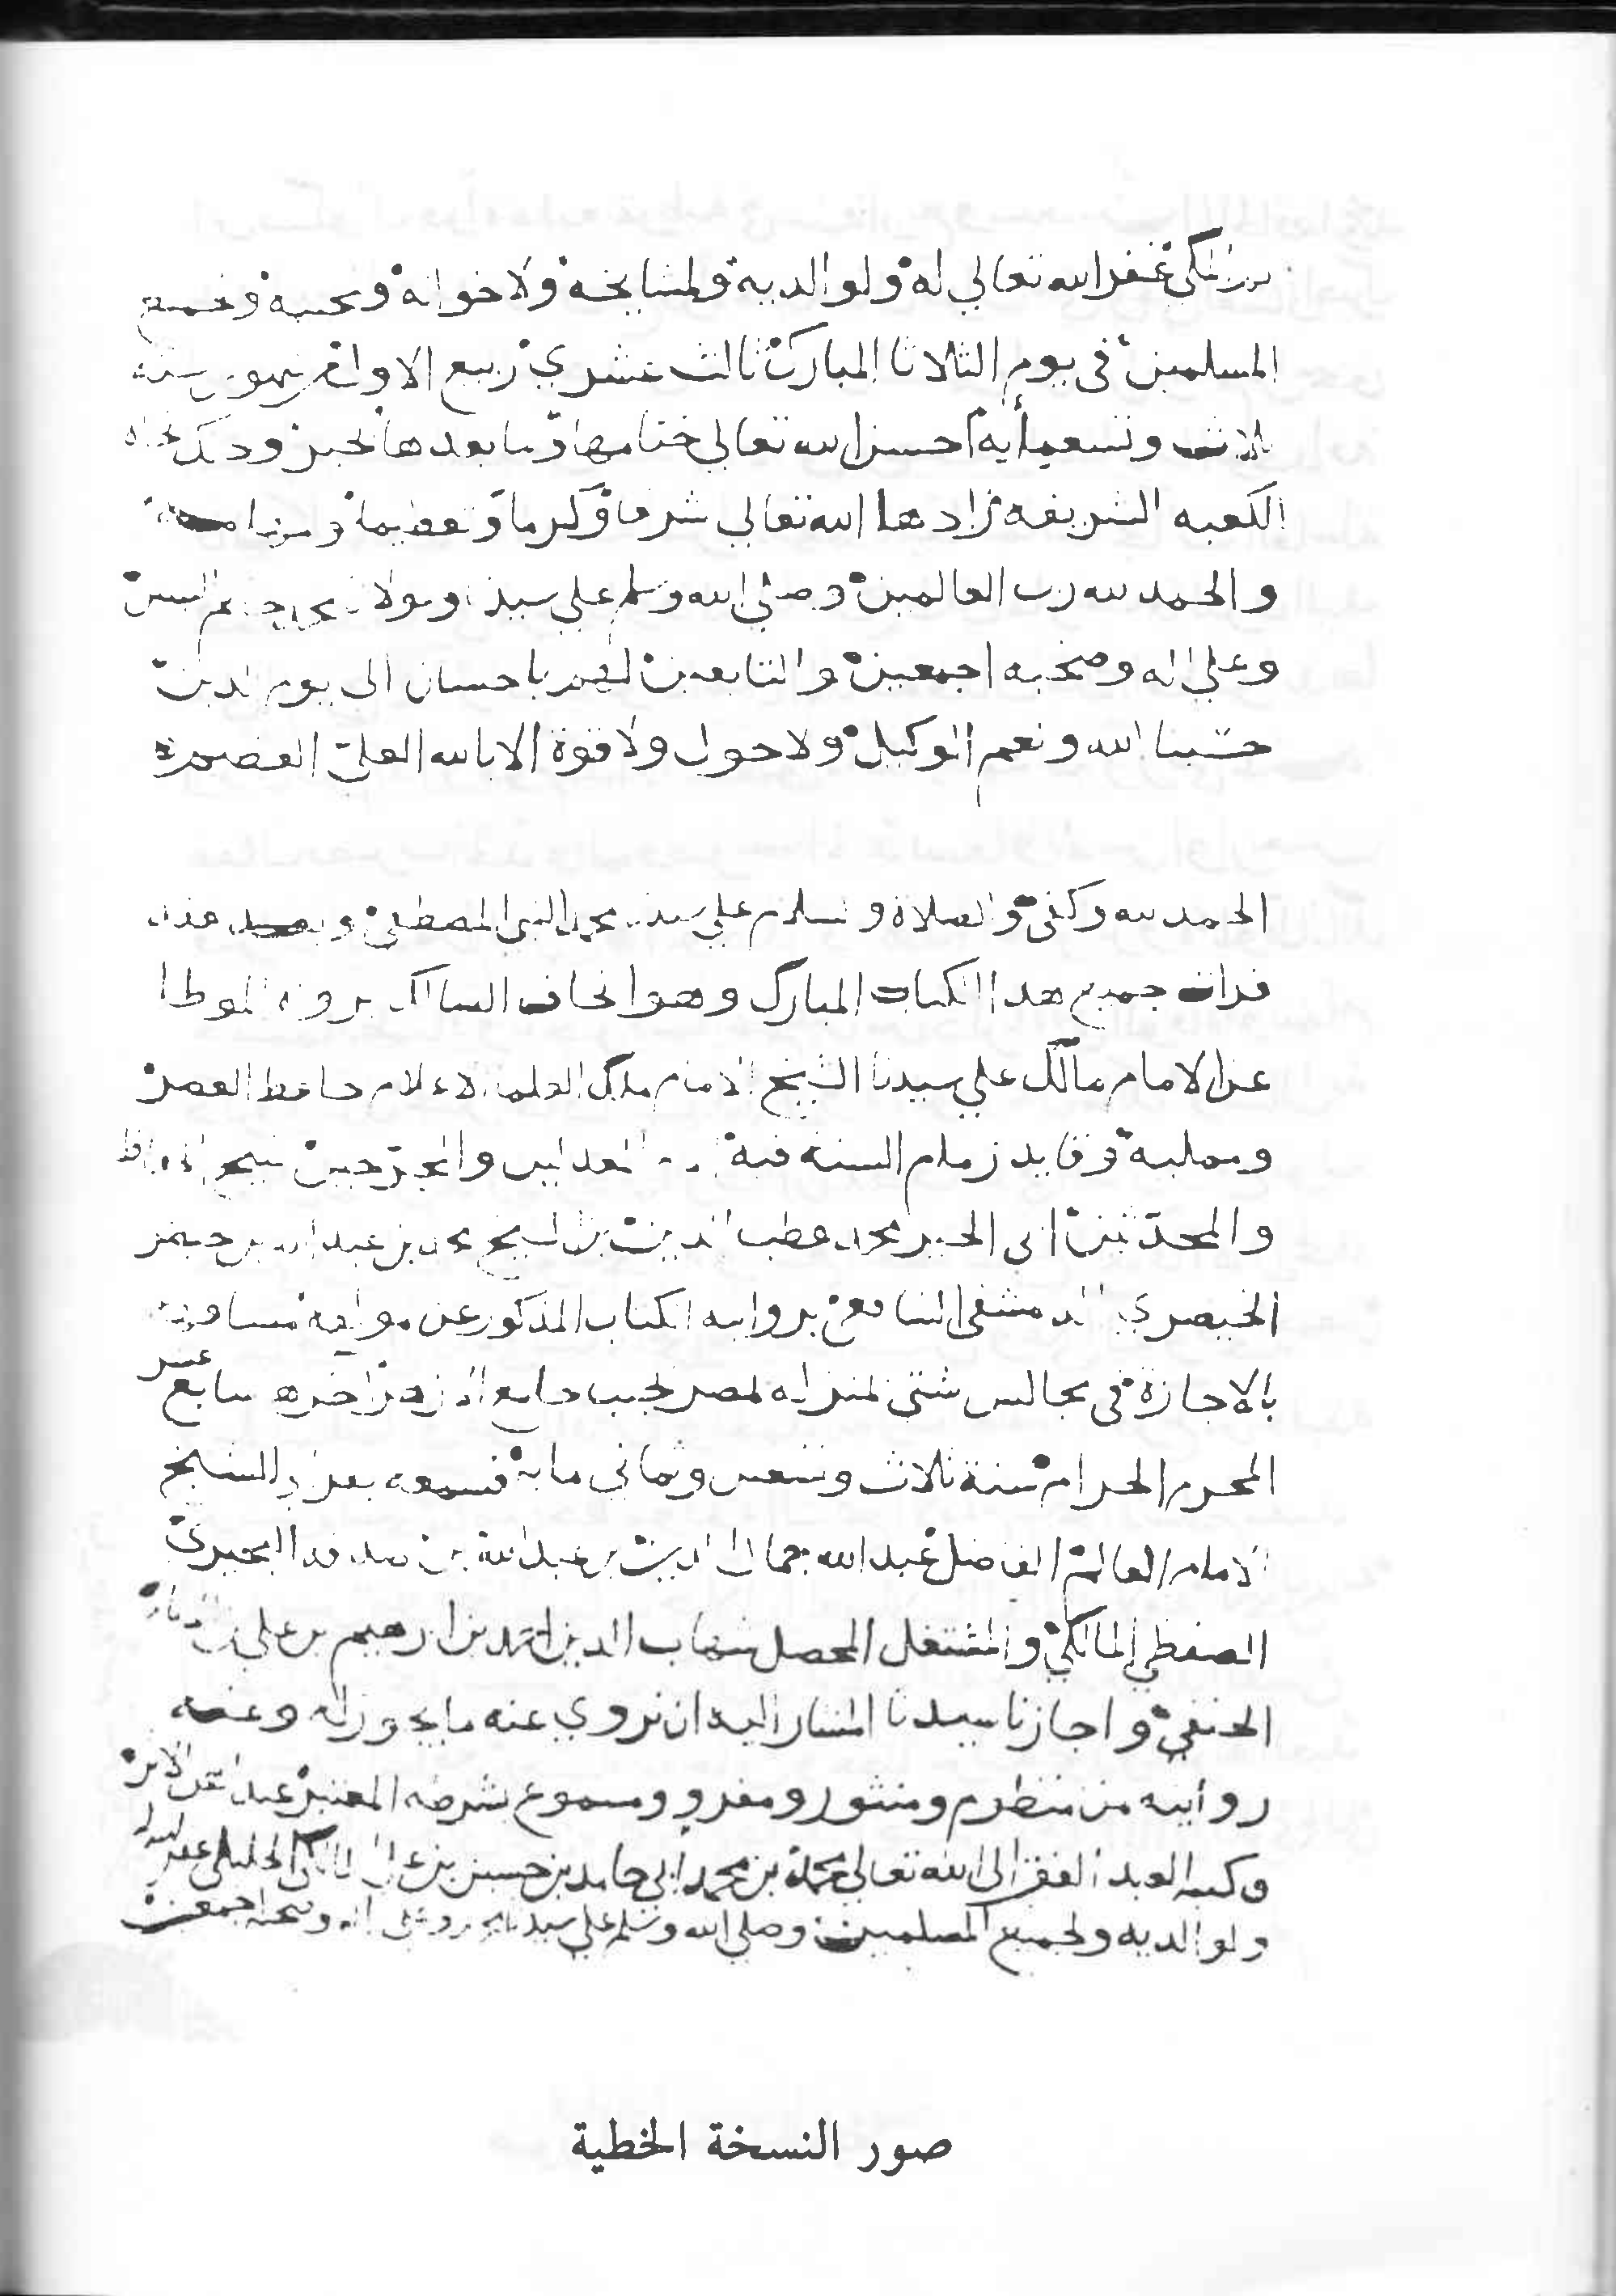 المكي غفر الله تعالي له ولوالديه ولمشايخه ولاخوانه ومحبيه ولجميع
المسلمين في يوم الثلاثا المبارك ثالث عشري ربيع الاول شهور سنه
ثلاث وتسعمايه احسن الله تعالي ختامها وما بعدها بخير وذلك تجاه
الكعبه الشريفه زادها الله تعالي شرفا وكرما وتعظيما ومهابه
والحمد لله رب العالمين وصلي الله وسلم علي سيدنا ومولانا محمد خاتم النبيين
وعلي اله وصحبه اجمعين والتابعين لهم باحسان الى يوم الدين
حسبنا الله ونعم الوكيل ولا حول ولا قوة الا بالله العلي العظيم
الحمد لله وكفى والصلاة والسلام علي سيدنا محمد النبي المصطفى وبعد فقد
قرات جميع هذا الكتاب المبارك وهو اتحاف السالك برواة الموطا
عن الامام مالك علي سيدنا الشيخ الامام ملك العلما الاعلام حافظ العصر
وقايد زمام السنة المعدلين والمجرحين شيخ الحفاظ
والمحدثين ابي الخير محمد قطب الدين بن الشيخ محمد بن عبد الله بن خيضر
الخيضري الدمشقي الشافعي بروايته الكتاب المذكور عن مولفه
بالاجازة في مجالس شتى بمنزله بمصر بجنب جامع الازهر اخره سابع عشر
المحرم الحرام سنة ثلاث وتسعين وثماني مايه فسمعه بقراتي الشيخ
الامام العالم الفاضل عبد الله جمال الدين بن عبد الله بن البحيري
المالكي والمشتغل المحصل شهاب الدين احمد بن ابرهيم بن علي بن
الحنفي واجازنا سيدنا المشار اليه ان نروي عنه ما يجوز له وعنه
روايته من منظوم ومنثور ومقرو ومسموع بشرطه المعتبر عند اهل الاثر
وكتبه العبد الفقير الى الله تعالي محمد بن محمد ابي حامد بن حسين بن علي المكي غفر الله له
ولوالديه ولجميع المسلمين وصلي الله وسلم علي سيدنا محمد وعلى اله وصحبه اجمعين
صور النسخة الخطية